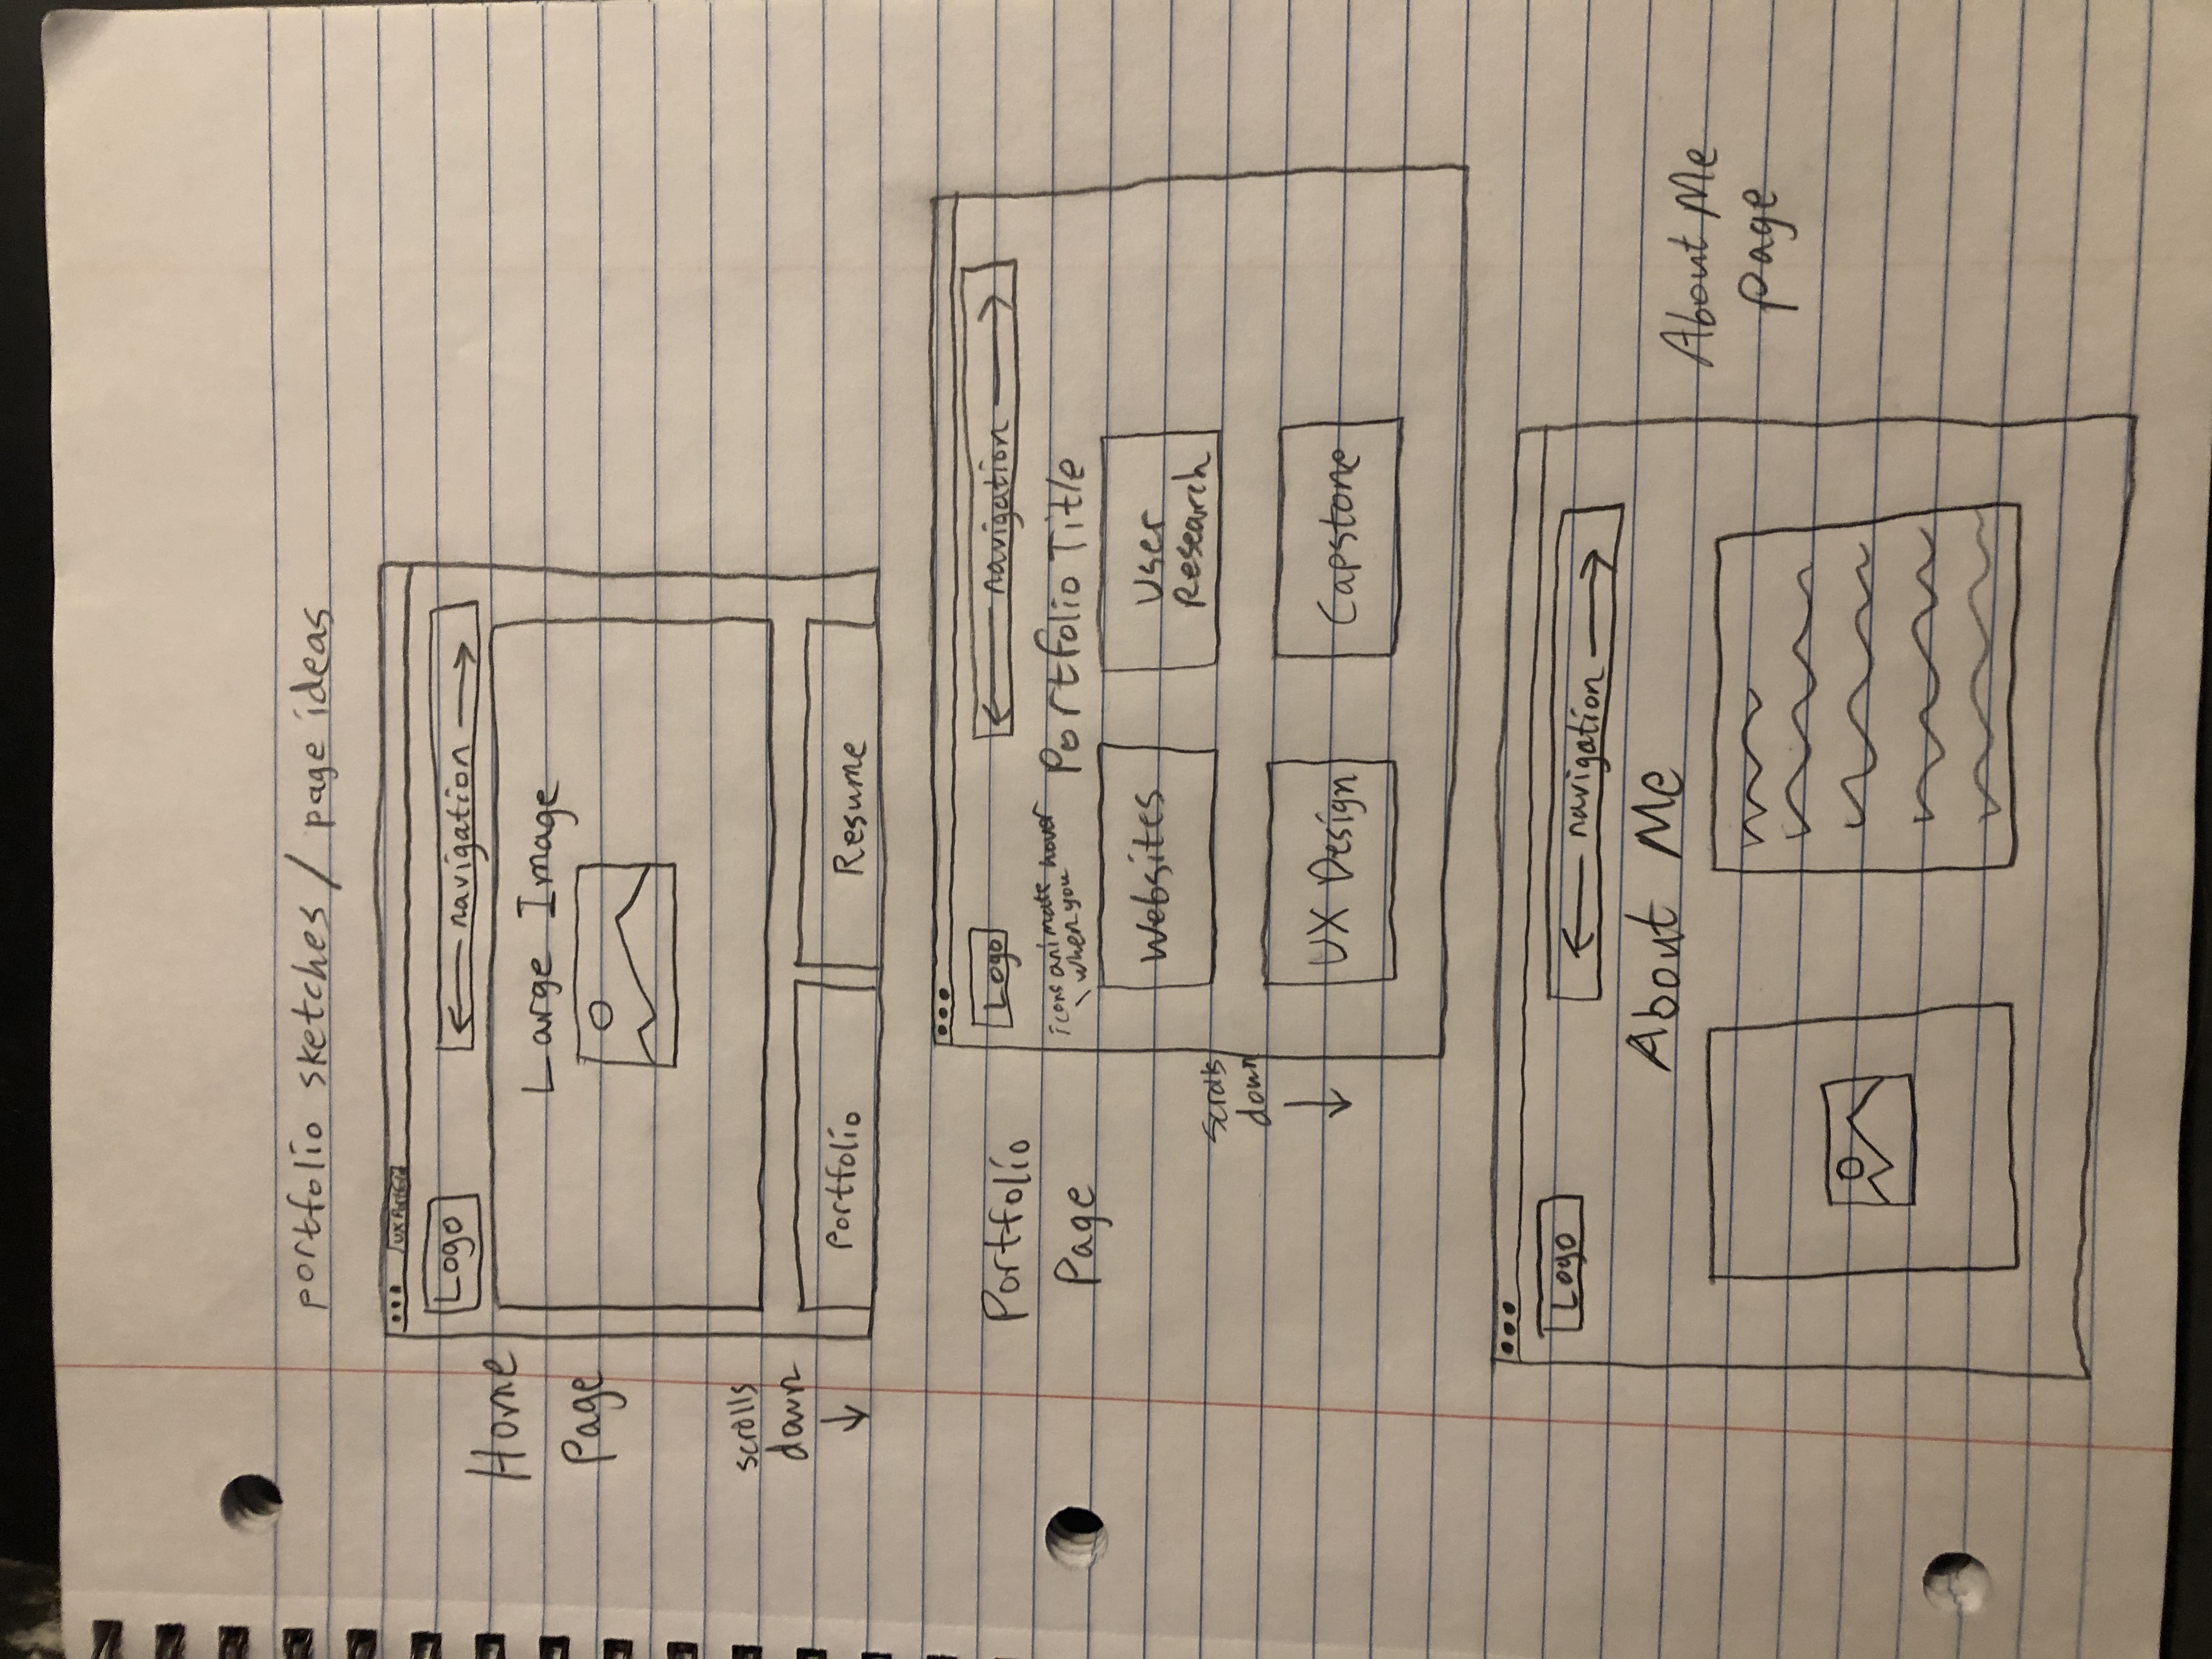 portfolio sketches / page ideas
UX Portfolio
Logo
navigation
Home
Page
Large Image
scrolls
down
Portfolio
Resume
Portfolio
Page
Logo
navigation
icons animate
when you hover
Portfolio Title
Websites
User
Research
scrolls
down
UX Design
Capstone
Logo
navigation
About Me
About Me
page